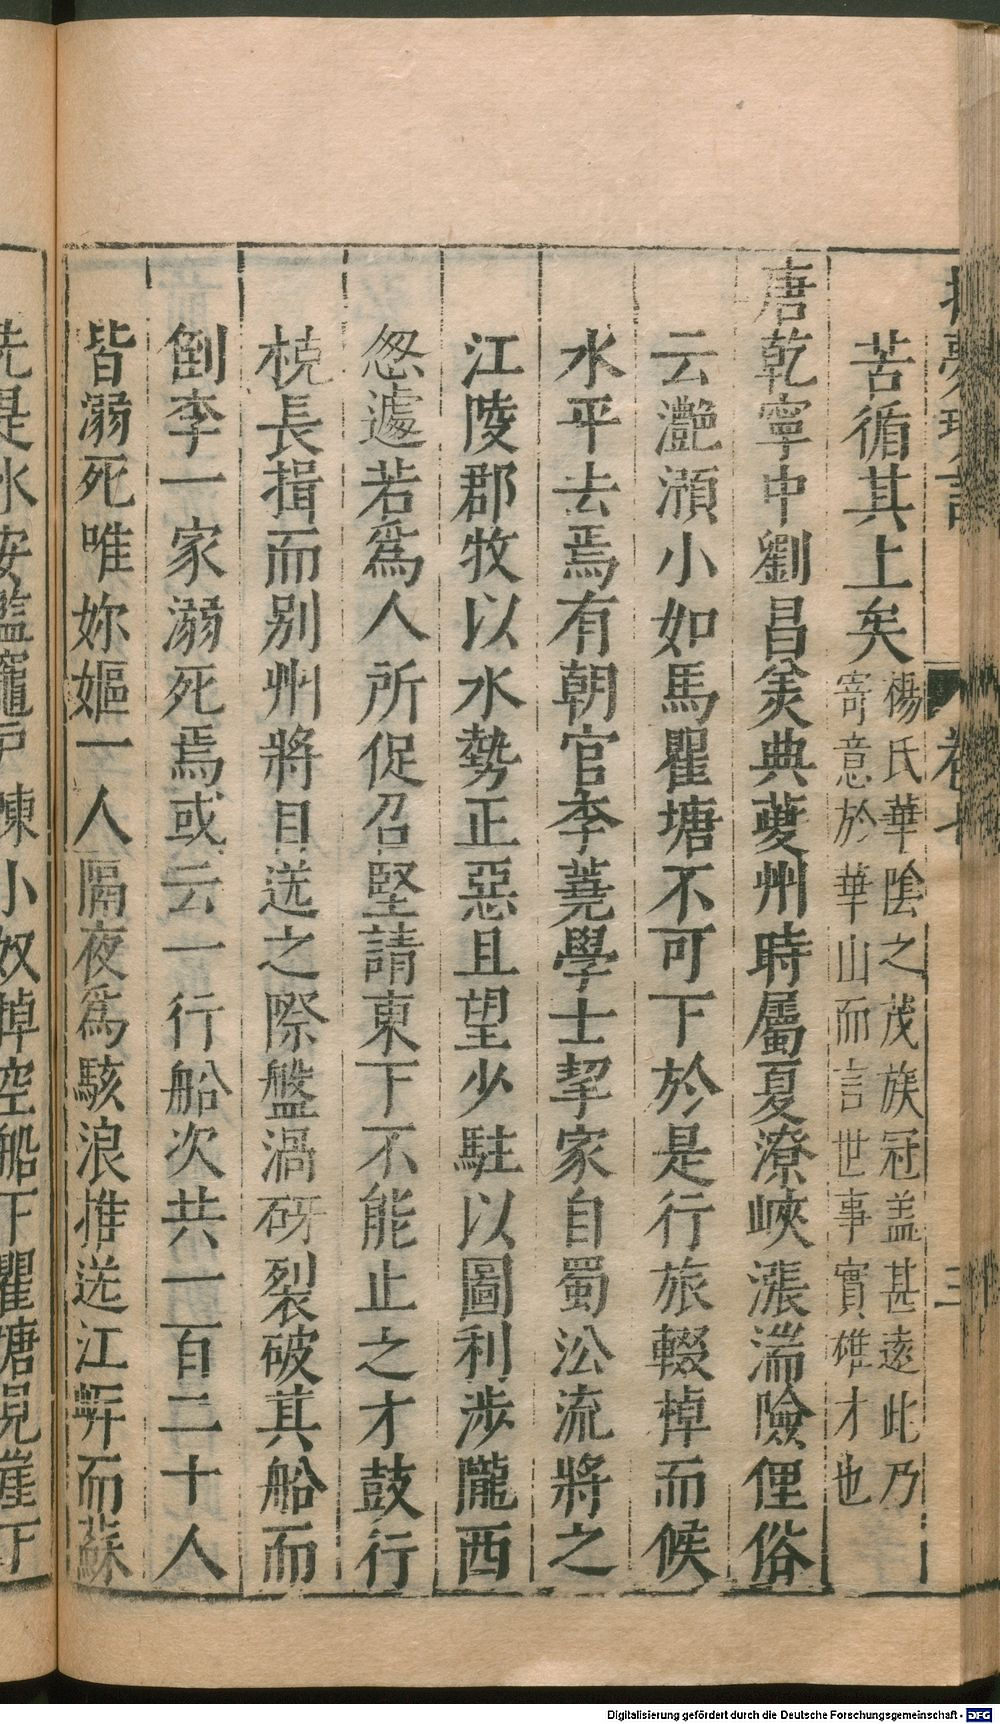 苦循其上矣楊氏華陰之茂族冠盖甚遠此乃
寄意於華山而言世事實雄才也
唐乾寧中劉昌美典夔州時屬夏潦峽漲湍險俚俗
云灔澦小如馬瞿塘不可下於是行旅輟棹而候
水平去焉有朝官李蕘學士挈家自蜀㳂流將之
江陵郡牧以水勢正惡且望少駐以圖利涉隴西
怱遽若爲人所促召堅請東下不能止之才鼓行
橈長揖而别州將目送之際盤渦砑裂破其船而
倒李一家溺死焉或云一行船次共一百二十人
皆溺死唯妳嫗一人隔夜爲駭浪推送江㟁而蘇
先是水安監竈戸陳小奴棹空船下瞿塘見崖下
卷七
三
Digitalisierung gefördert durch die Deutsche Forschungsgemeinschaft - DFG